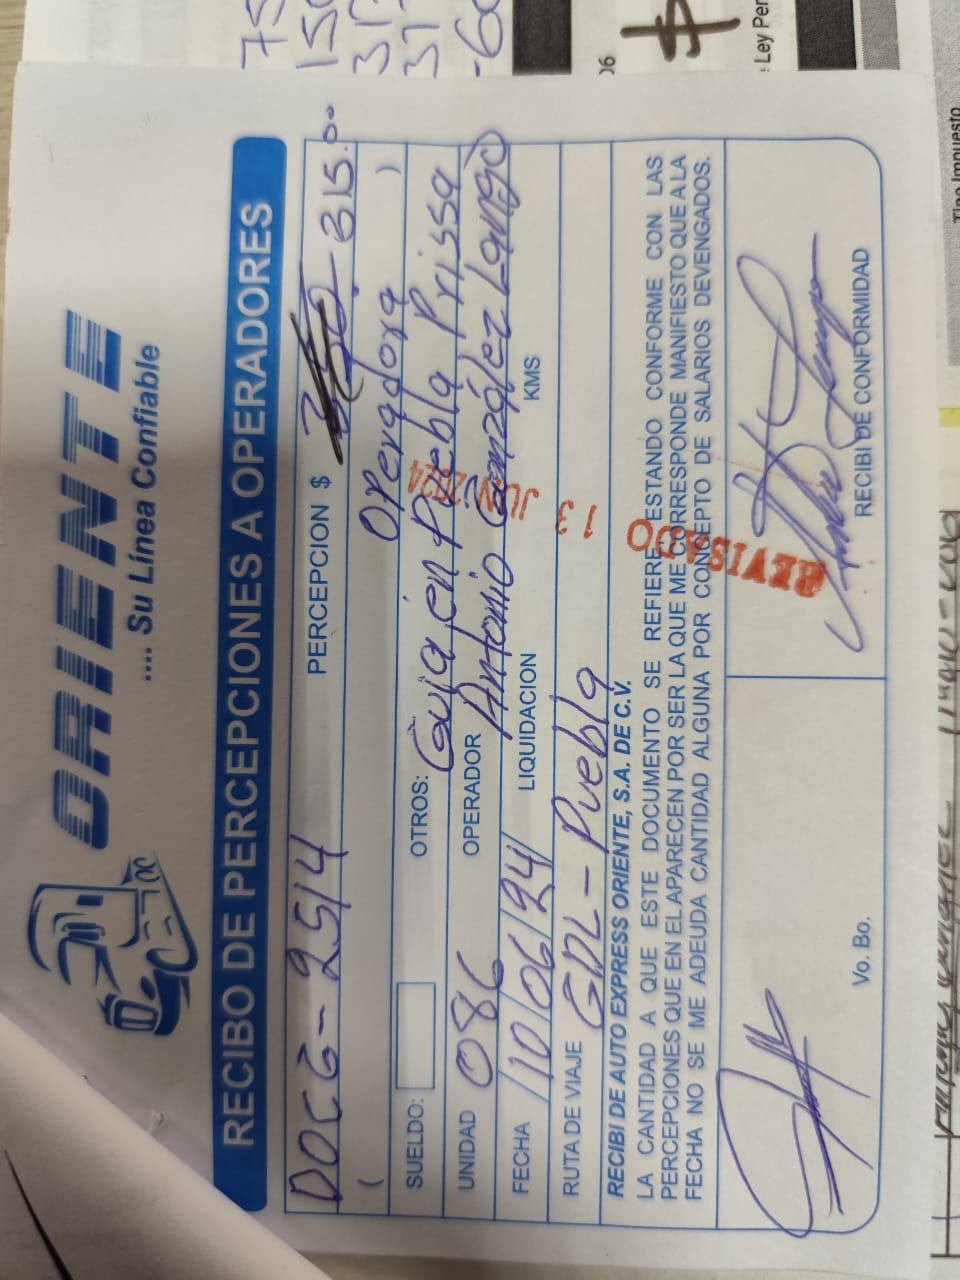 ORIENTE
.... Su Línea Confiable
RECIBO DE PERCEPCIONES A OPERADORES
DOCG-2514 PERCEPCION $ 315.00
( Operadora )
SUELDO: OTROS: Guia en Puebla Prissa
UNIDAD 086 OPERADOR Antonio González Lango
FECHA 10/06/24 LIQUIDACION KMS
RUTA DE VIAJE GDL - Puebla
13 JUN 2024
REVISADO
RECIBI DE AUTO EXPRESS ORIENTE, S.A. DE C.V.
LA CANTIDAD A QUE ESTE DOCUMENTO SE REFIERE ESTANDO CONFORME CON LAS
PERCEPCIONES QUE EN EL APARECEN POR SER LA QUE ME CORRESPONDE MANIFIESTO QUE A LA
FECHA NO SE ME ADEUDA CANTIDAD ALGUNA POR CONCEPTO DE SALARIOS DEVENGADOS.
Vo. Bo.
RECIBI DE CONFORMIDAD
Ley Per
Tipo Impuesto